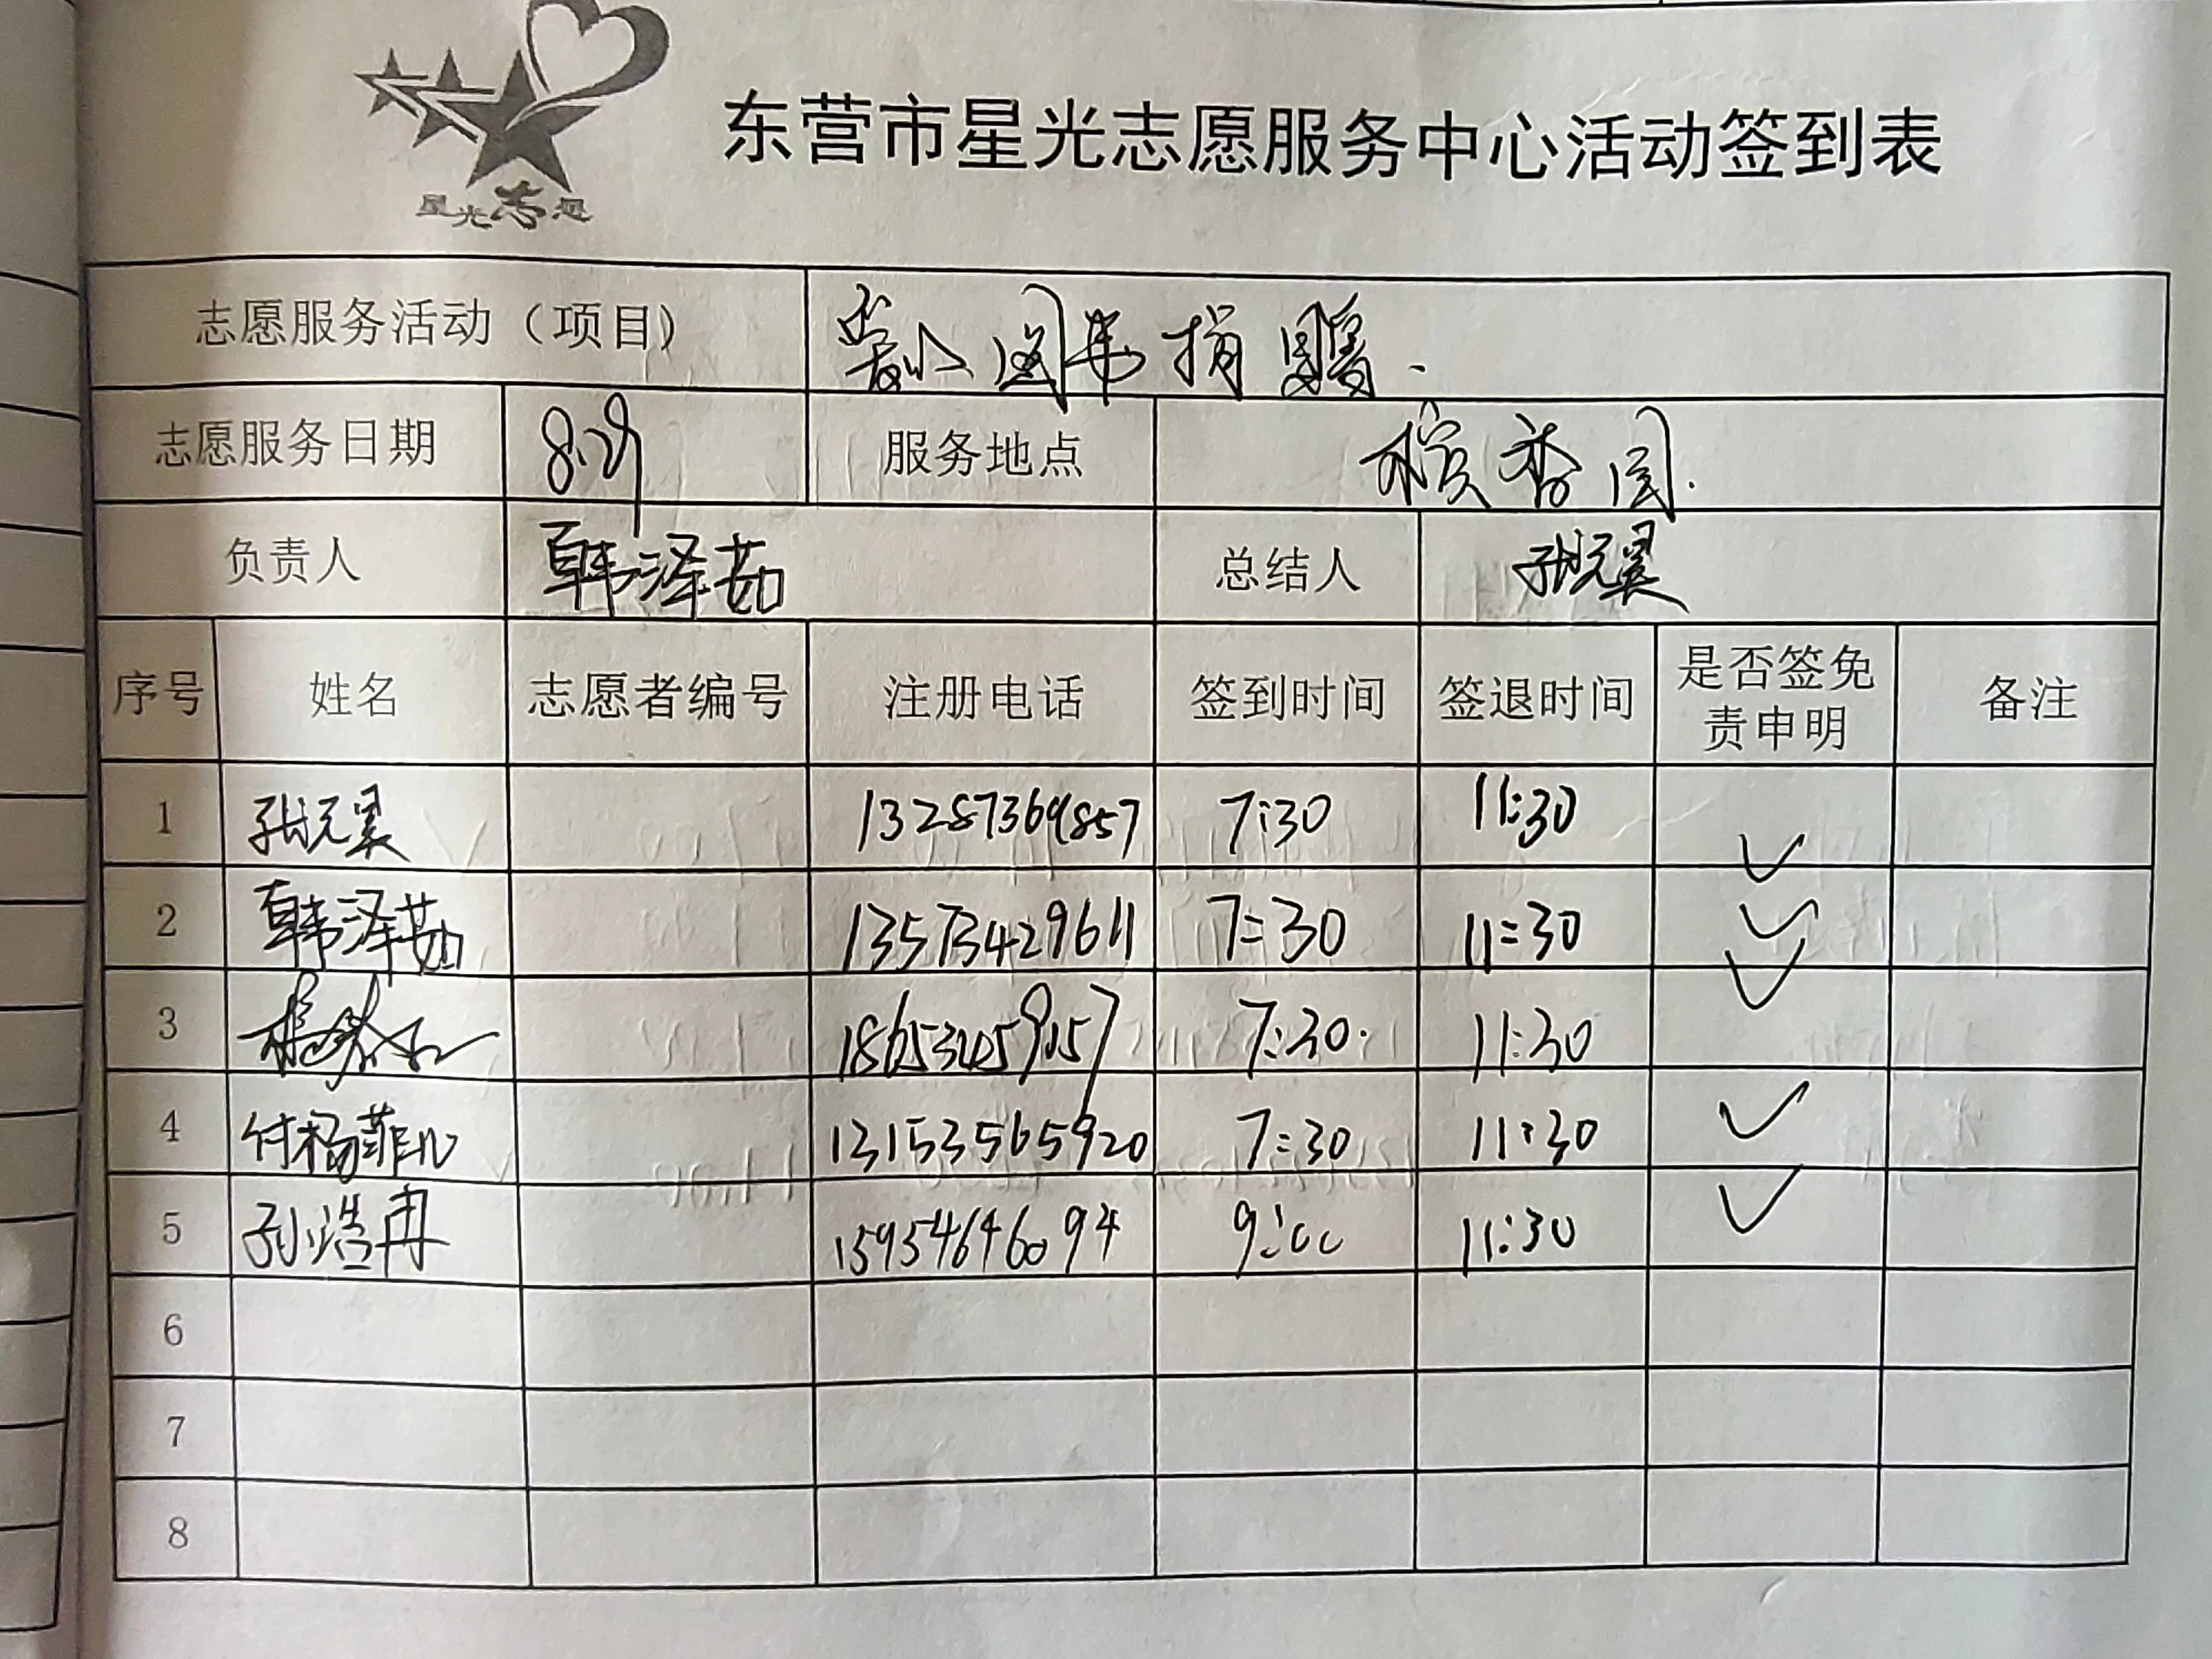 星光志愿
东营市星光志愿服务中心活动签到表
志愿服务活动（项目） 爱心图书捐赠.
志愿服务日期 8.29 服务地点 槟香园.
负责人 韩泽茹 总结人 张元昊
序号 姓名 志愿者编号 注册电话 签到时间 签退时间 是否签免责申明 备注
1 张元昊 13287369857 7:30 11:30 ✓
2 韩泽茹 13573429611 7:30 11:30 ✓
3 7:30. 11:30 ✓
4 付杨菲儿 131535565920 7:30 11:30 ✓
5 孙浩冉 15954646094 9:00 11:30 ✓
6
7
8